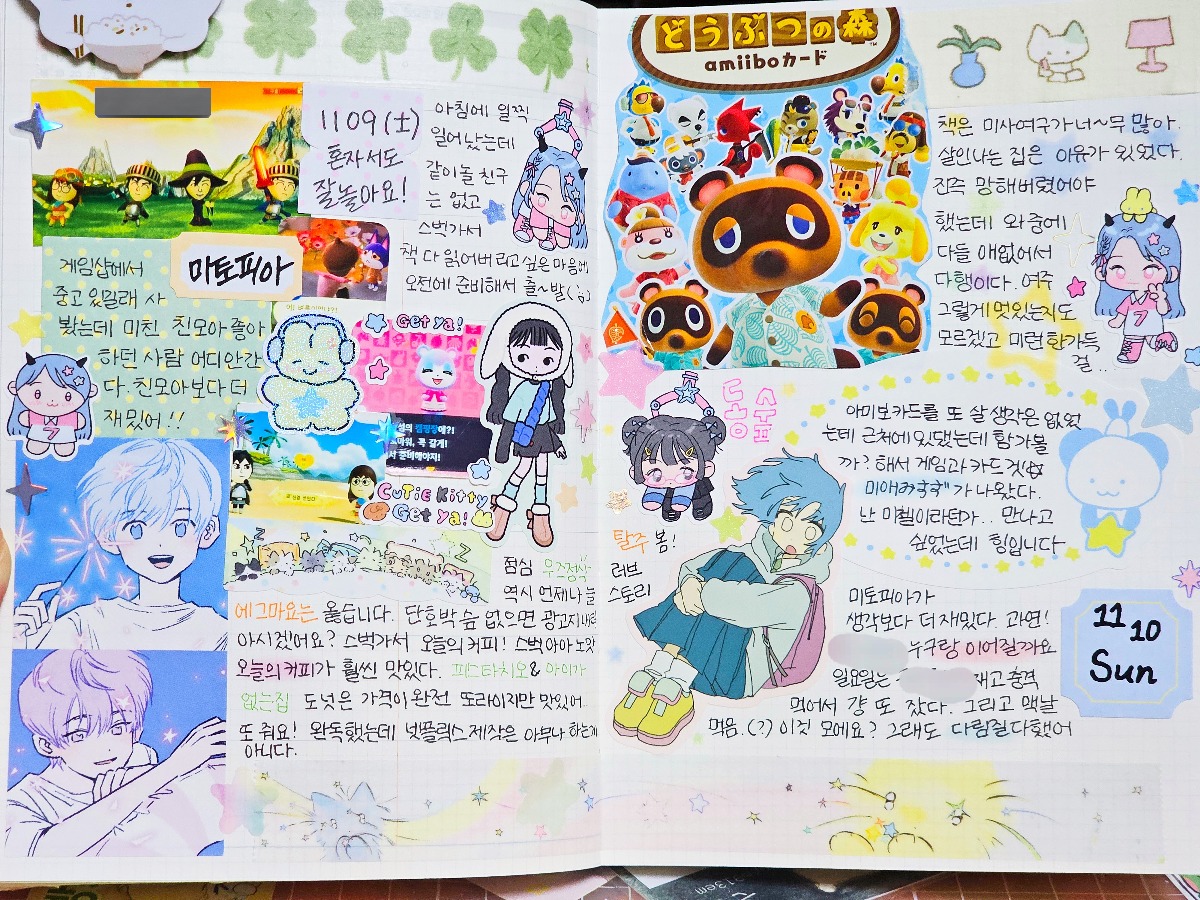 11 09 (土)
혼자서도
잘놀아요!
아침에 일찍
일어났는데
같이놀 친구
는 없고
스벅가서
책 다 읽어버리고싶은 마음에
오전에 준비해서 출~발
게임샵에서
중고 있길래 사
봤는데 미친 친모아 좋아
하던 사람 어디안간
다. 친모아보다 더
재밌어!!
미토피아
Get ya!
Cutie Kitty
Get ya!
점심 무적정식
역시 언제나 늘
에그마요는 옳습니다. 단호박숲 없으면 광고지내
아시겠어요? 스벅가서 오늘의 커피! 스벅아아 노맛
오늘의커피가 훨씬 맛있다. 피스타치오& 아이가
없는집 도넛은 가격이 완전 또라이지만 맛있어
또 줘요! 완독했는데 넷플릭스 제작은 아무나 하는게
아니다.
どうぶつの森
amiiboカード
책은 미사여구가 너~무 많아.
살인나는 집은 이유가 있었다.
진즉 망해버렸어야
했는데 와중에
다들 애없어서
다행이다. 여주
그렇게 멋있는지도
모르겠고 미련한가득
걸..
동숲
아미보카드를 또 살 생각은 없었
는데 근처에 있댔는데 함 가볼
까? 해서 게임과 카드 겟!
미애みすず가 나왔다.
난 미첼이라던가.. 만나고
싶었는데 힝입니다
탈주 봄!
러브
스토리
미토피아가
생각보다 더 재밌다. 과연!
누구랑 이어질까요
일요일은 재고 충격
먹어서 걍 또 잤다. 그리고 맥날
먹음. (?) 이것 모에요? 그래도 다림질다했어
11
10
Sun